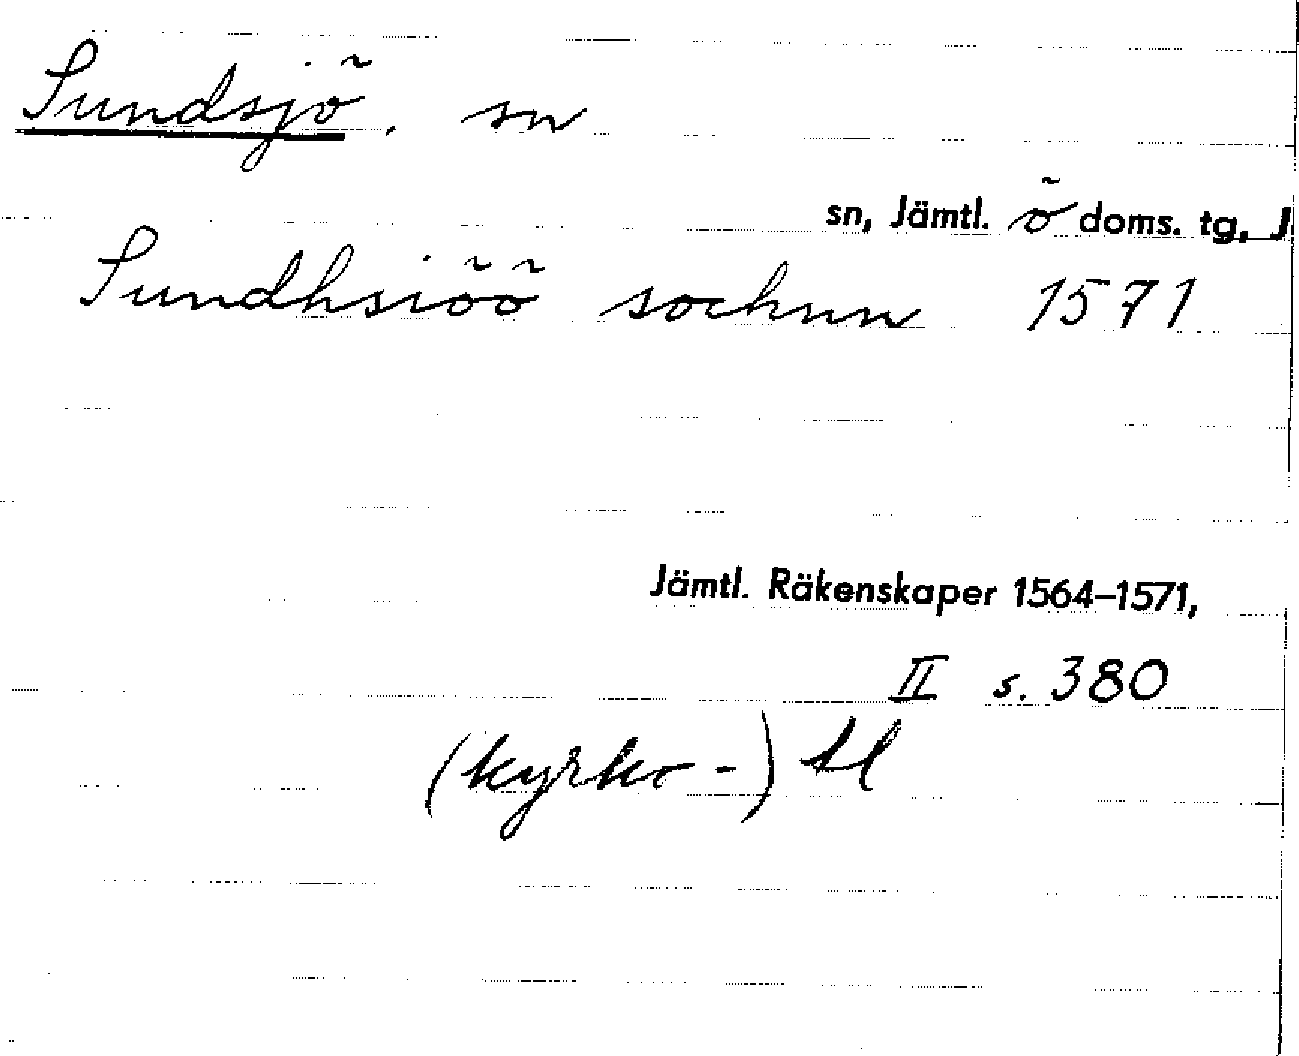 Sundsjö, sn
sn, Jämtl. ö doms. tg, J
Sundhsiöö sochnn 1571
Jämtl. Räkenskaper 1564–1571,
II s. 380
(kyrko-) tl